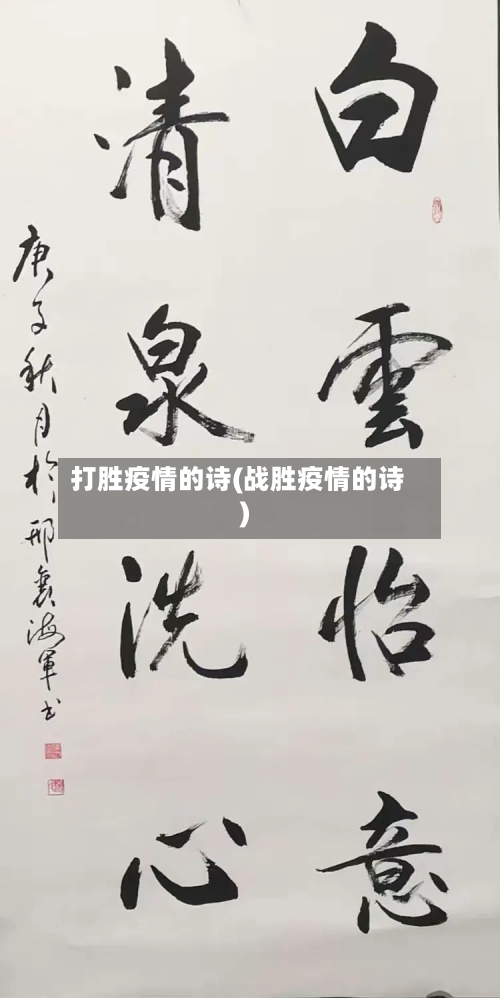 白雲怡意
清泉洗心
庚子秋月於邢襄海軍书
打胜疫情的诗(战胜疫情的诗
)